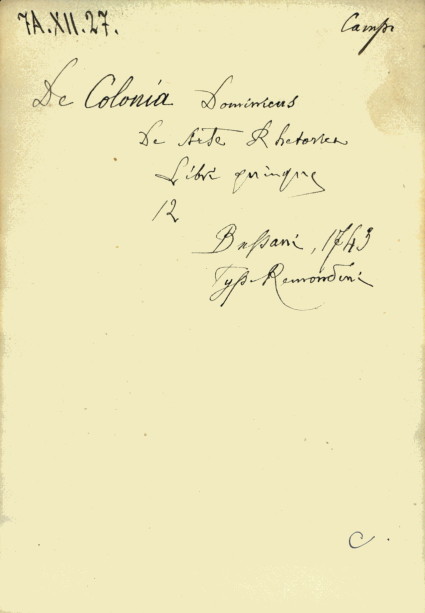 7A.XII.27.
Campi
De Colonia Dominicus
De Arte Rhetorica
Libri quinque
12
Bassani, 1743
Typ. Remondini
C.